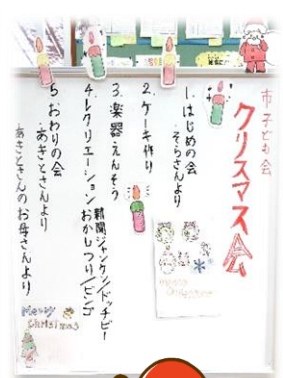 市子ども会
クリスマス会
1.はじめの会
そらさんより
2.ケーキ作り
3.楽器えんそう
4.レクリエーション 新聞ジャンケン/ドッチビー
おかしつり/ビンゴ
5.おわりの会
あきとさんより
あきとさんのお母さんより
Merry
Christmas